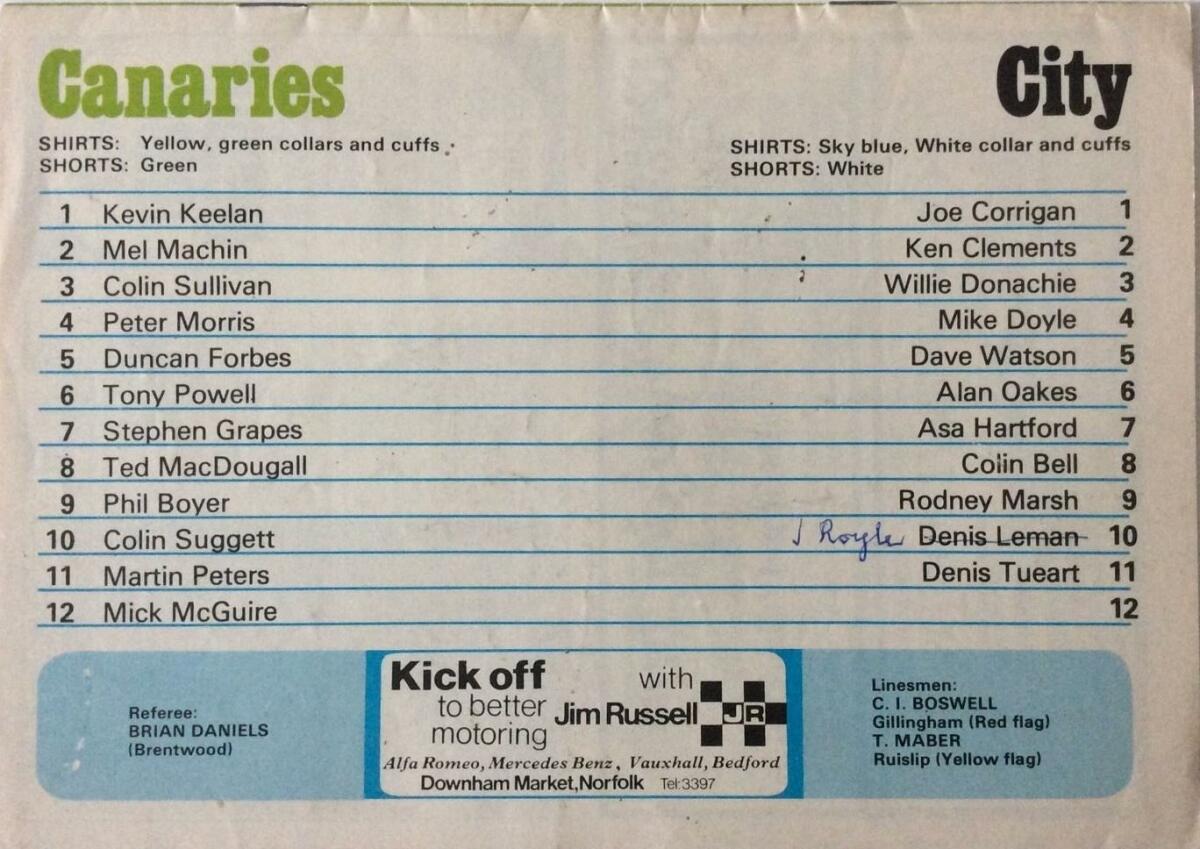 Canaries
City
SHIRTS: Yellow, green collars and cuffs
SHORTS: Green
SHIRTS: Sky blue, White collar and cuffs
SHORTS: White
1 Kevin Keelan Joe Corrigan 1
2 Mel Machin Ken Clements 2
3 Colin Sullivan Willie Donachie 3
4 Peter Morris Mike Doyle 4
5 Duncan Forbes Dave Watson 5
6 Tony Powell Alan Oakes 6
7 Stephen Grapes Asa Hartford 7
8 Ted MacDougall Colin Bell 8
9 Phil Boyer Rodney Marsh 9
10 Colin Suggett J Royle Denis Leman 10
11 Martin Peters Denis Tueart 11
12 Mick McGuire 12
Referee:
BRIAN DANIELS
(Brentwood)
Kick off with
to better Jim Russell JR
motoring
Alfa Romeo, Mercedes Benz, Vauxhall, Bedford
Downham Market, Norfolk Tel:3397
Linesmen:
C. I. BOSWELL
Gillingham (Red flag)
T. MABER
Ruislip (Yellow flag)